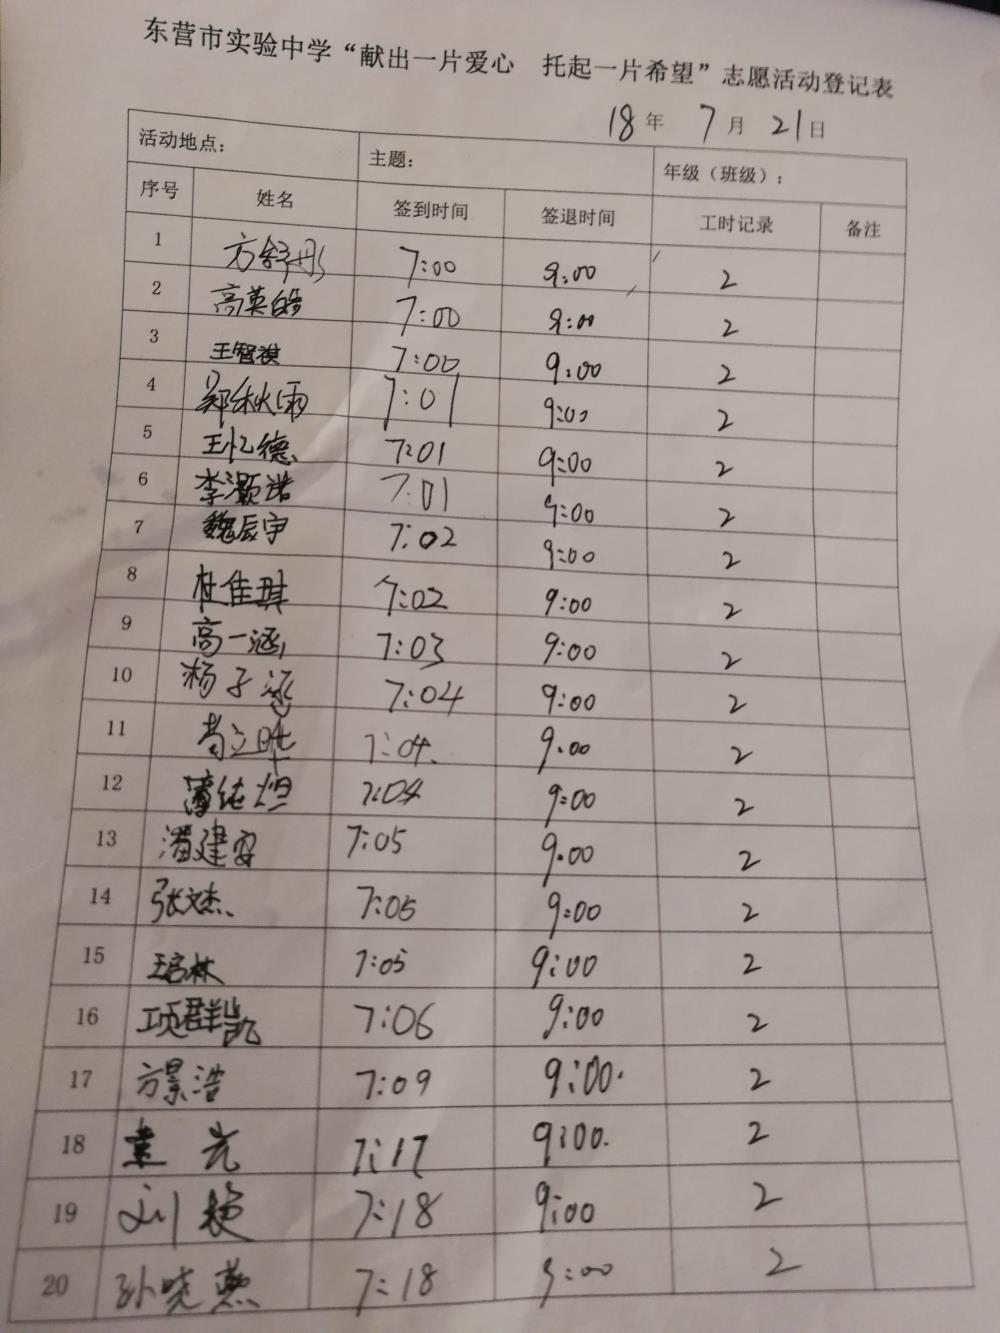 东营市实验中学“献出一片爱心 托起一片希望”志愿活动登记表
18年 7月 21日
活动地点: 主题: 年级（班级）:
序号 姓名 签到时间 签退时间 工时记录 备注
1 方舒彤 7:00 9:00 2
2 高英皓 7:00 9:00 2
3 王智祺 7:00 9:00 2
4 郑秋雨 7:01 9:00 2
5 王忆德 7:01 9:00 2
6 李灏诺 7:01 9:00 2
7 魏辰宇 7:02 9:00 2
8 杜佳琪 7:02 9:00 2
9 高一涵 7:03 9:00 2
10 杨子涵 7:04 9:00 2
11 7:04 9:00 2
12 7:04 9:00 2
13 潘建安 7:05 9:00 2
14 张文杰 7:05 9:00 2
15 7:05 9:00 2
16 项群凯 7:06 9:00 2
17 方景浩 7:09 9:00 2
18 7:17 9:00 2
19 刘 7:18 9:00 2
20 孙晓燕 7:18 9:00 2